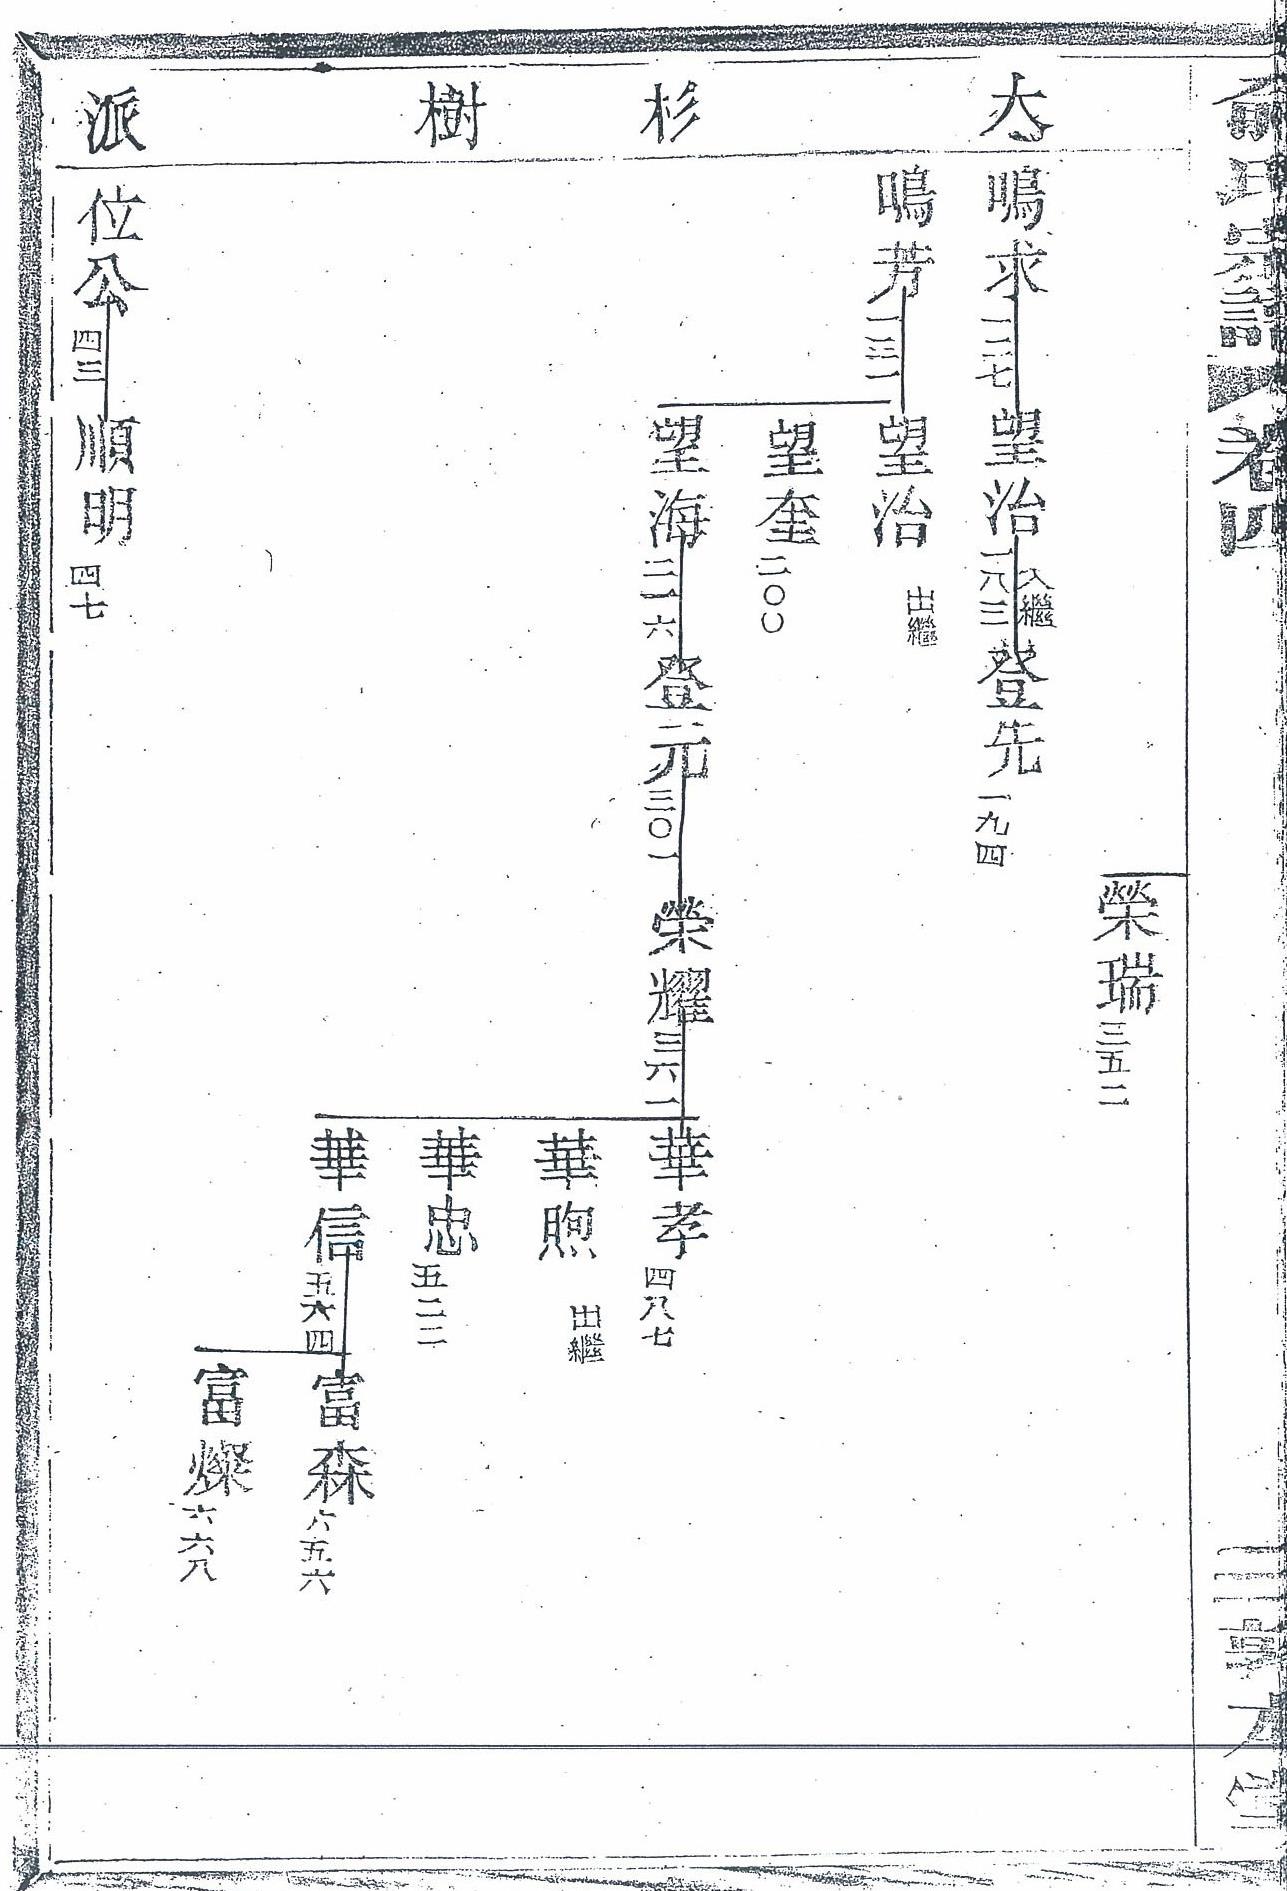 俞氏宗譜 卷四
三 敦本堂
大杉樹派
榮瑞 三五二
鳴求 一二七
望治 入繼 一八三
登先 一九四
鳴芳 一三一
望治 出繼
望奎 二〇〇
望海 二一六
登元 三〇一
榮耀 三六一
華孝 四八七
華煦 出繼
華忠 五二二
華信 五六四
富森 六五六
富燦 六六八
位公 四三
順明 四七